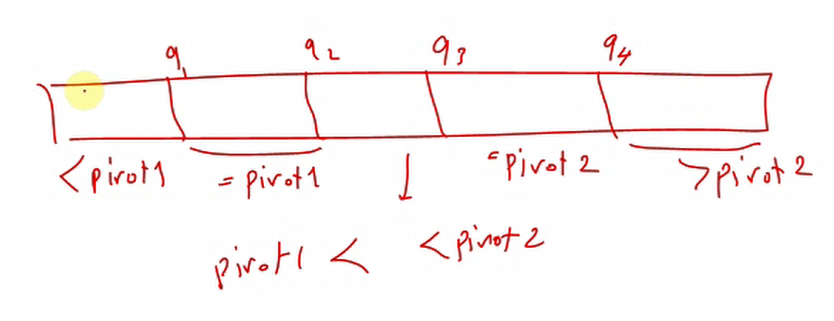 q1 q2 q3 q4
<pivot1 =pivot1 =pivot2 >pivot2
pivot1 < <pivot2